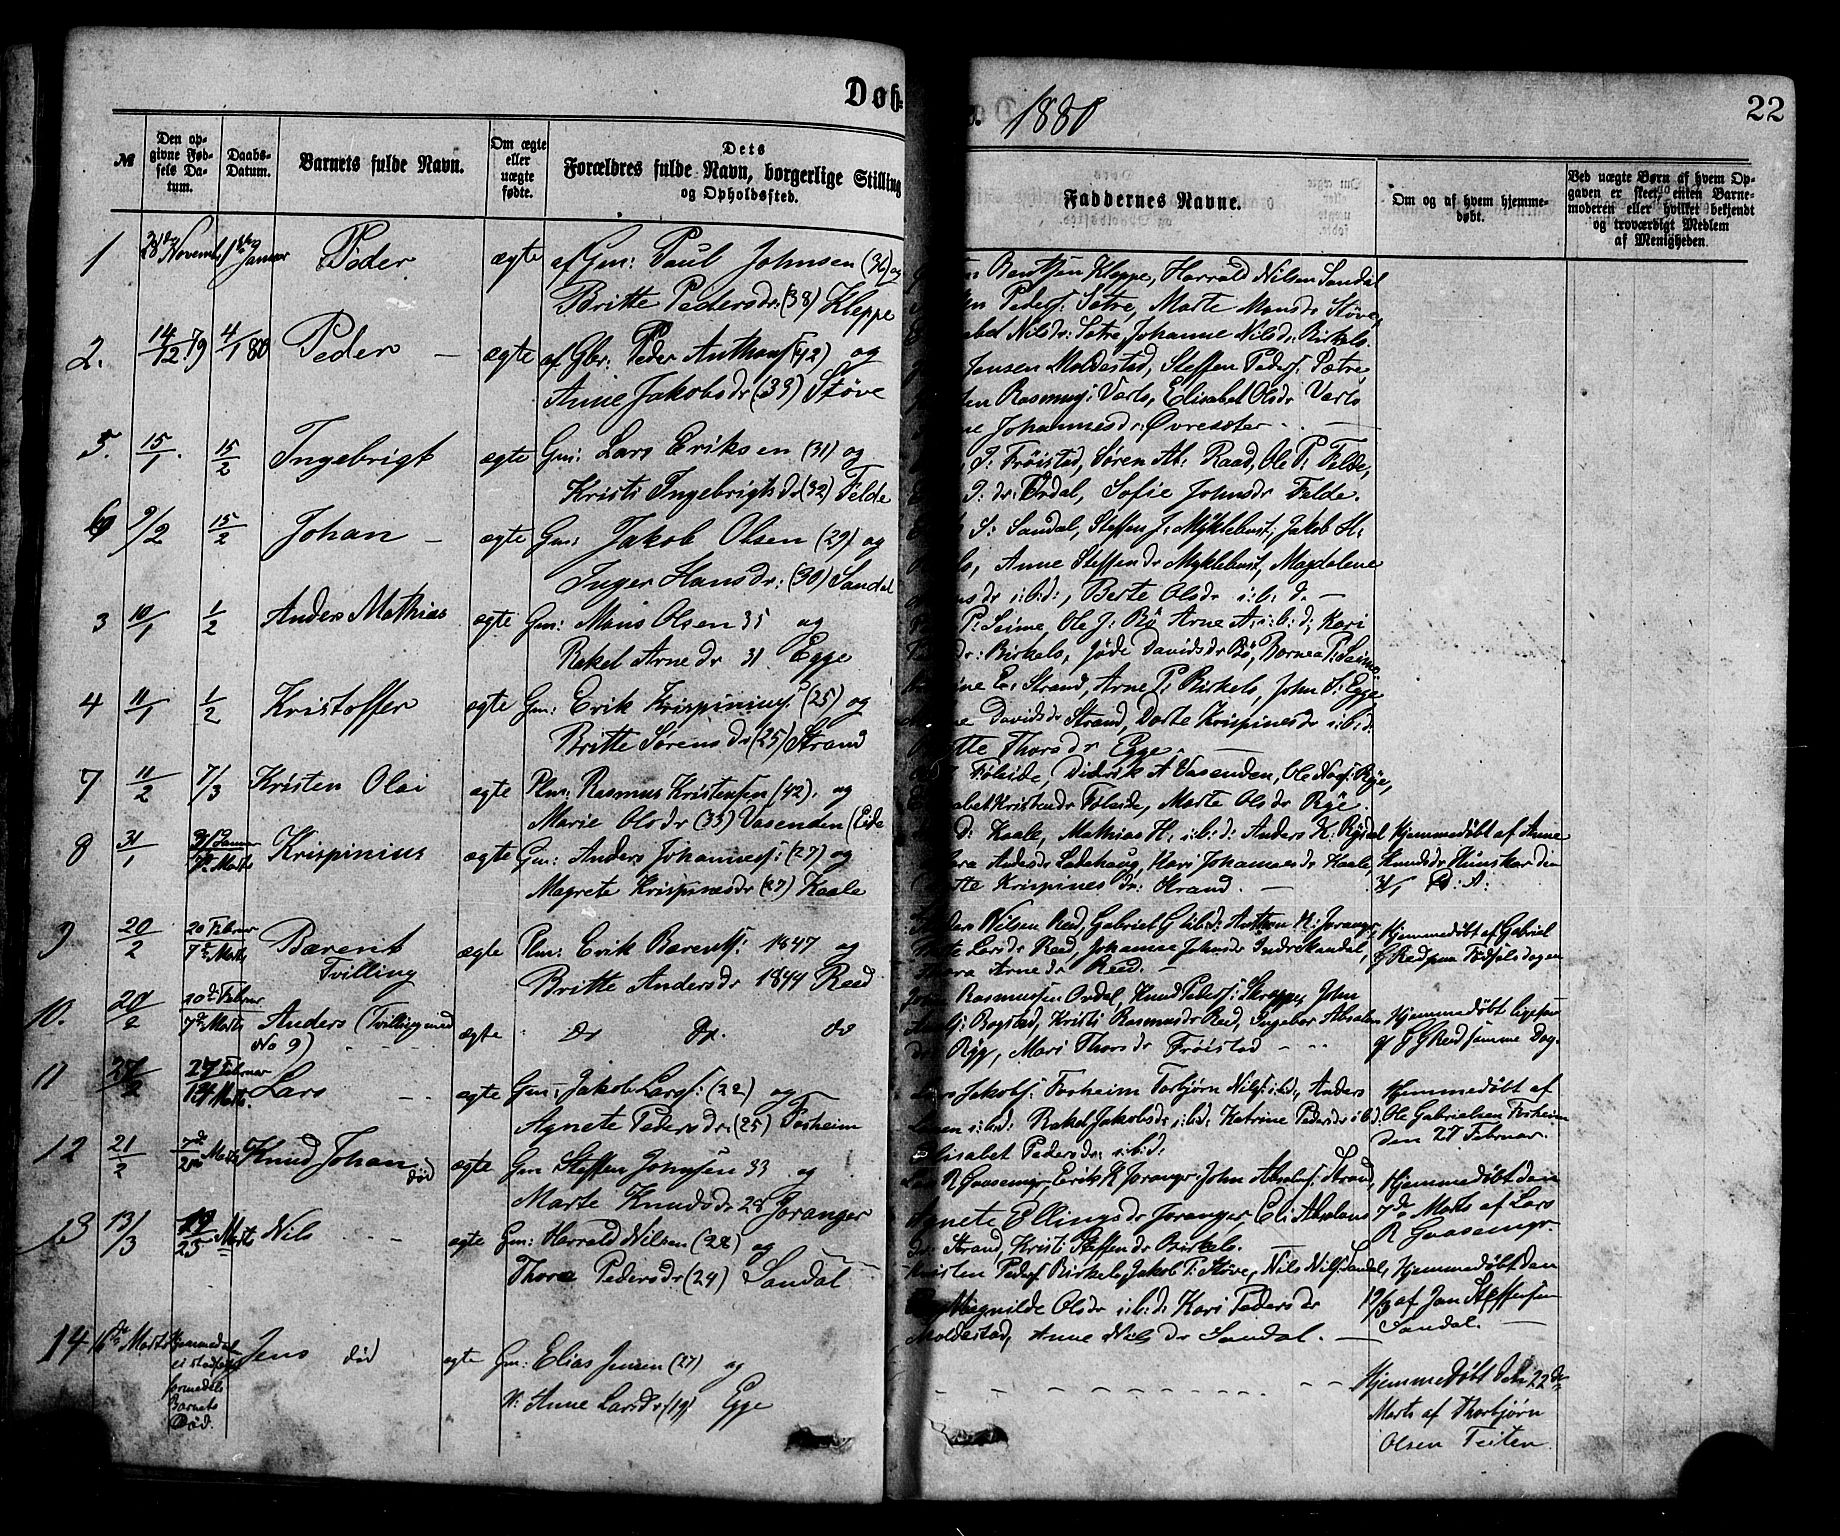 Døb=
1880
22
№
Den op-
givne Fød-
sels Da-
tum.
Daabs-
Datum.
Barnets fulde Navn.
Om ægte
eller
uægte
fødte.
Dets
Forældres fulde Navn, borgerlige Stilling
og Opholdssted.
Faddernes Navne.
Om og af hvem hjemme-
døbt.
Ved uægte Børn af hvem Op-
gaven er skeet, enten Barne-
moderen eller hvilket bekjendt
og troværdigt Medlem
af Menigheden.
1 28de Novemb. 1ste Januar Peder ægte af Gm: Paul Johnsen (36) og
Britte Pedersdr. (38) Kleppe
Bentsen Kleppe, Harrald Nilsen Sandal
Peders. Sætre, Marte Monsdr Støve,
Nilsdr: Sætre, Johanne Nilsdr: Birkelo.
2. 14/12 79 4/1 80 Peder – ægte af Gbr: Peder Anthons (42) og
Anne Jakobsdr (33) Støve
Jensen Moldestad, Steffen Peders. Sætre,
Rasmus: Varlo, Elisabet Olsdr Varlo
Johannesdr: Øvresæter – . –
5. 15/1. 15/2 Ingebrigt ægte Gm: Lars Eriksen (31) og
Kristi Ingebrigtsdr (32) Felde
P: Frøistad, Søren Ab: Raad, Ole P: Felde,
P: dr: Ordal, Sofie Johnsdr Felde.
6 9/2 15/2 Johan – ægte Gm: Jakob Olsen (29) og
Inger Hansdr: (30) Sandal
S: Sandal, Steffen J: Myklebust, Jakob H.
Anne Steffensdr Myklebust, Magdalene
i:b:d:, Berte Olsdr i:b:d. –
3 10/1 1/2 Anders Mathias ægte Gm: Mons Olsen 35 og
Rakel Arnedr 31 Egge
P: Seime, Ole J: Bø Arne A: i:b:d; Kari
dr: Birkelo, Jøde Davidsdr Bø, Bornea P: Seime
4 11/1 1/2 Kristoffer ægte Gm: Erik Krispinius. (25) og
Britte Sørensdr (25) Strand
E: Strand, Arne P: Birkelo, John S: Egge,
Davidsdr Strand, Dorte Krispinesdr i:b:d.
Thorsdr Egge. –
7 11/2 7/3 Kristen Olai ægte Plm: Rasmus Kristensen (42). og
Marie Olsdr (35) Vasenden (Eide
Føleide, Didrik A Vasenden, Ole Nos: Rye,
Kristensdr Føleide, Marte Olsdr Rye.
8 31/1 31/1 Januar
7de Marts Krispinius ægte Gm: Anders Johanness: (27) og
Magrete Krispinesdr (27) Kaale
d: Kaale, Mathias H. i:b:d: Anders K: Rysdal
Andersdr Ladehaug, Kari Johannesdr Kaale,
Krispinesdr: Strand. –
Hjemmedøbt af Anne
Knudsdr Hunskar den
31/1 D: A:
9 20/2 20 Februar
7de Marts Bærent
Tvilling ægte Plm: Erik Barents: 1847 og
Britte Andersdr 1844 Reed
Nilsen Reed, Gabriel G i:b:d: Anthon H: Joranger,
Larsdr Reed, Johanne Johnsdr Indreskaadal,
Thora Arnedr Reed. –
Hjemmedøbt af Gabriel
G Red paa Fødselsdagen
10. 20/2 20de Februar
7de Marts Anders (Tvilling med
No 9) ægte do do. do
Rasmussen Ordal, Knud Peders: Skreppe, John
Bogstad, Kristi Rasmusdr Reed, Ingebor Absalons
dr Ryg, Mari Thorsdr Frøistad
Hjemmedøbt ligesaa
af G G Red samme Dag.
11 27/2 27 Februar
14 Marts. Lars ægte Gm: Jakob Lars: (22) og
Agnete Pedersdr (25) Forheim
Lars Jakobs: Forheim Torbjørn Nils: i:b:d:, Anders
Larsen i:b:d: Rakel Jakobsdr i:b:d: Katrine Pedersdr i:b:d.
Elisabet Pedersdr: i:b:d:
Hjemmedøbt af
Ole Gabrielsen Forheim
den 27 Februar.
12 21/2 7de
25 Marts Knud Johan
død ægte Gm Steffen Johnsen 33 og
Marte Knudsdr 28 Joranger
Lars R Gaasemyr, Erik R Joranger John Absalons: Strand,
Agnete Ellingsdr Joranger, Eli Absalons
Dr Strand, Kristi Steffensdr Birkelo.
Hjemmedøbt den
7de Marts af Lars
R Gaasemyr.
13 13/3 19
25 Marts Nils ægte Gm: Harrald Nilsen (28) og
Thora Pedersdr (24) Sandal
Kristen Peders Birkelo, Jakob P: Støve, Nils Nils: Sandal,
Olsdr i:b:d: Kari Pedersdr
Moldestad, Anne Nilsdr Sandal. –
Hjemmedøbt den
19/3 af Jan Steffensen
Sandal. –
14 16de Marts Hjemmedøbt
ei stadfæstet
formedels
Barnets
Død. Jens død ægte Gm: Elias Jensen (27) og
H: Anne Larsdr (19) Egge
Hjemmedøbt den 22de
Marts af Thorbjørn
Olsen Feiten.